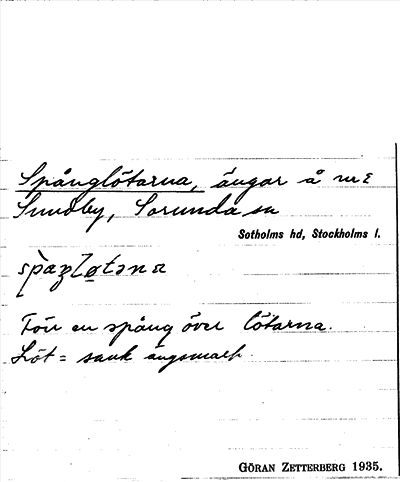 Spånglötarna, ängar å nr 2
Sundby, Sorunda sn
Sotholms hd, Stockholms l.
Förr en spång över lötarna.
Löt = sank ängsmark.
GÖRAN ZETTERBERG 1935.